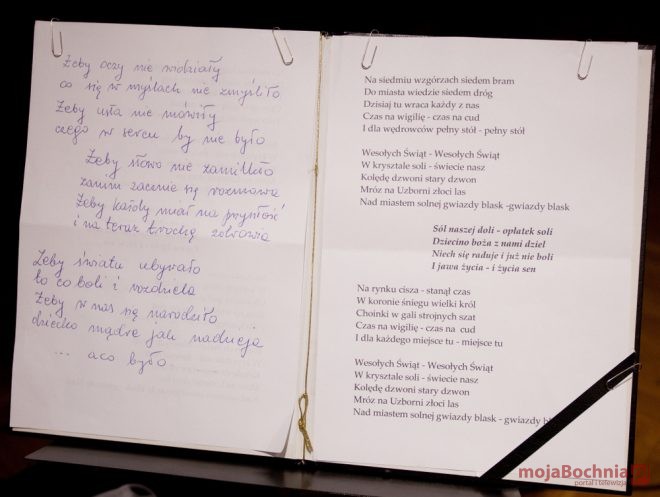 Żeby oczy nie widziały
co się w myślach nie zmyśliło
Żeby usta nie mówiły
czego w sercu by nie było
Żeby słowo nie zamilkło
zanim zacznie się rozmowa
Żeby każdy miał na przyszłość
i na teraz trochę zdrowia
Żeby światu ubywało
to co boli i rozdziela
Żeby w nas się narodziło
dziecko mądre jak nadzieja
... a co było
Na siedmiu wzgórzach siedem bram
Do miasta wiedzie siedem dróg
Dzisiaj tu wraca każdy z nas
Czas na wigilię - czas na cud
I dla wędrowców pełny stół - pełny stół
Wesołych Świąt - Wesołych Świąt
W krysztale soli - świecie nasz
Kolędę dzwoni stary dzwon
Mróz na Uzborni złoci las
Nad miastem solnej gwiazdy blask -gwiazdy blask
Sól naszej doli - opłatek soli
Dziecino boża z nami dziel
Niech się raduje i już nie boli
I jawa życia - i życia sen
Na rynku cisza - stanął czas
W koronie śniegu wielki król
Choinki w gali strojnych szat
Czas na wigilię - czas na cud
I dla każdego miejsce tu - miejsce tu
Wesołych Świąt - Wesołych Świąt
W krysztale soli - świecie nasz
Kolędę dzwoni stary dzwon
Mróz na Uzborni złoci las
Nad miastem solnej gwiazdy blask - gwiazdy
mojaBochnia
portal i telewizja